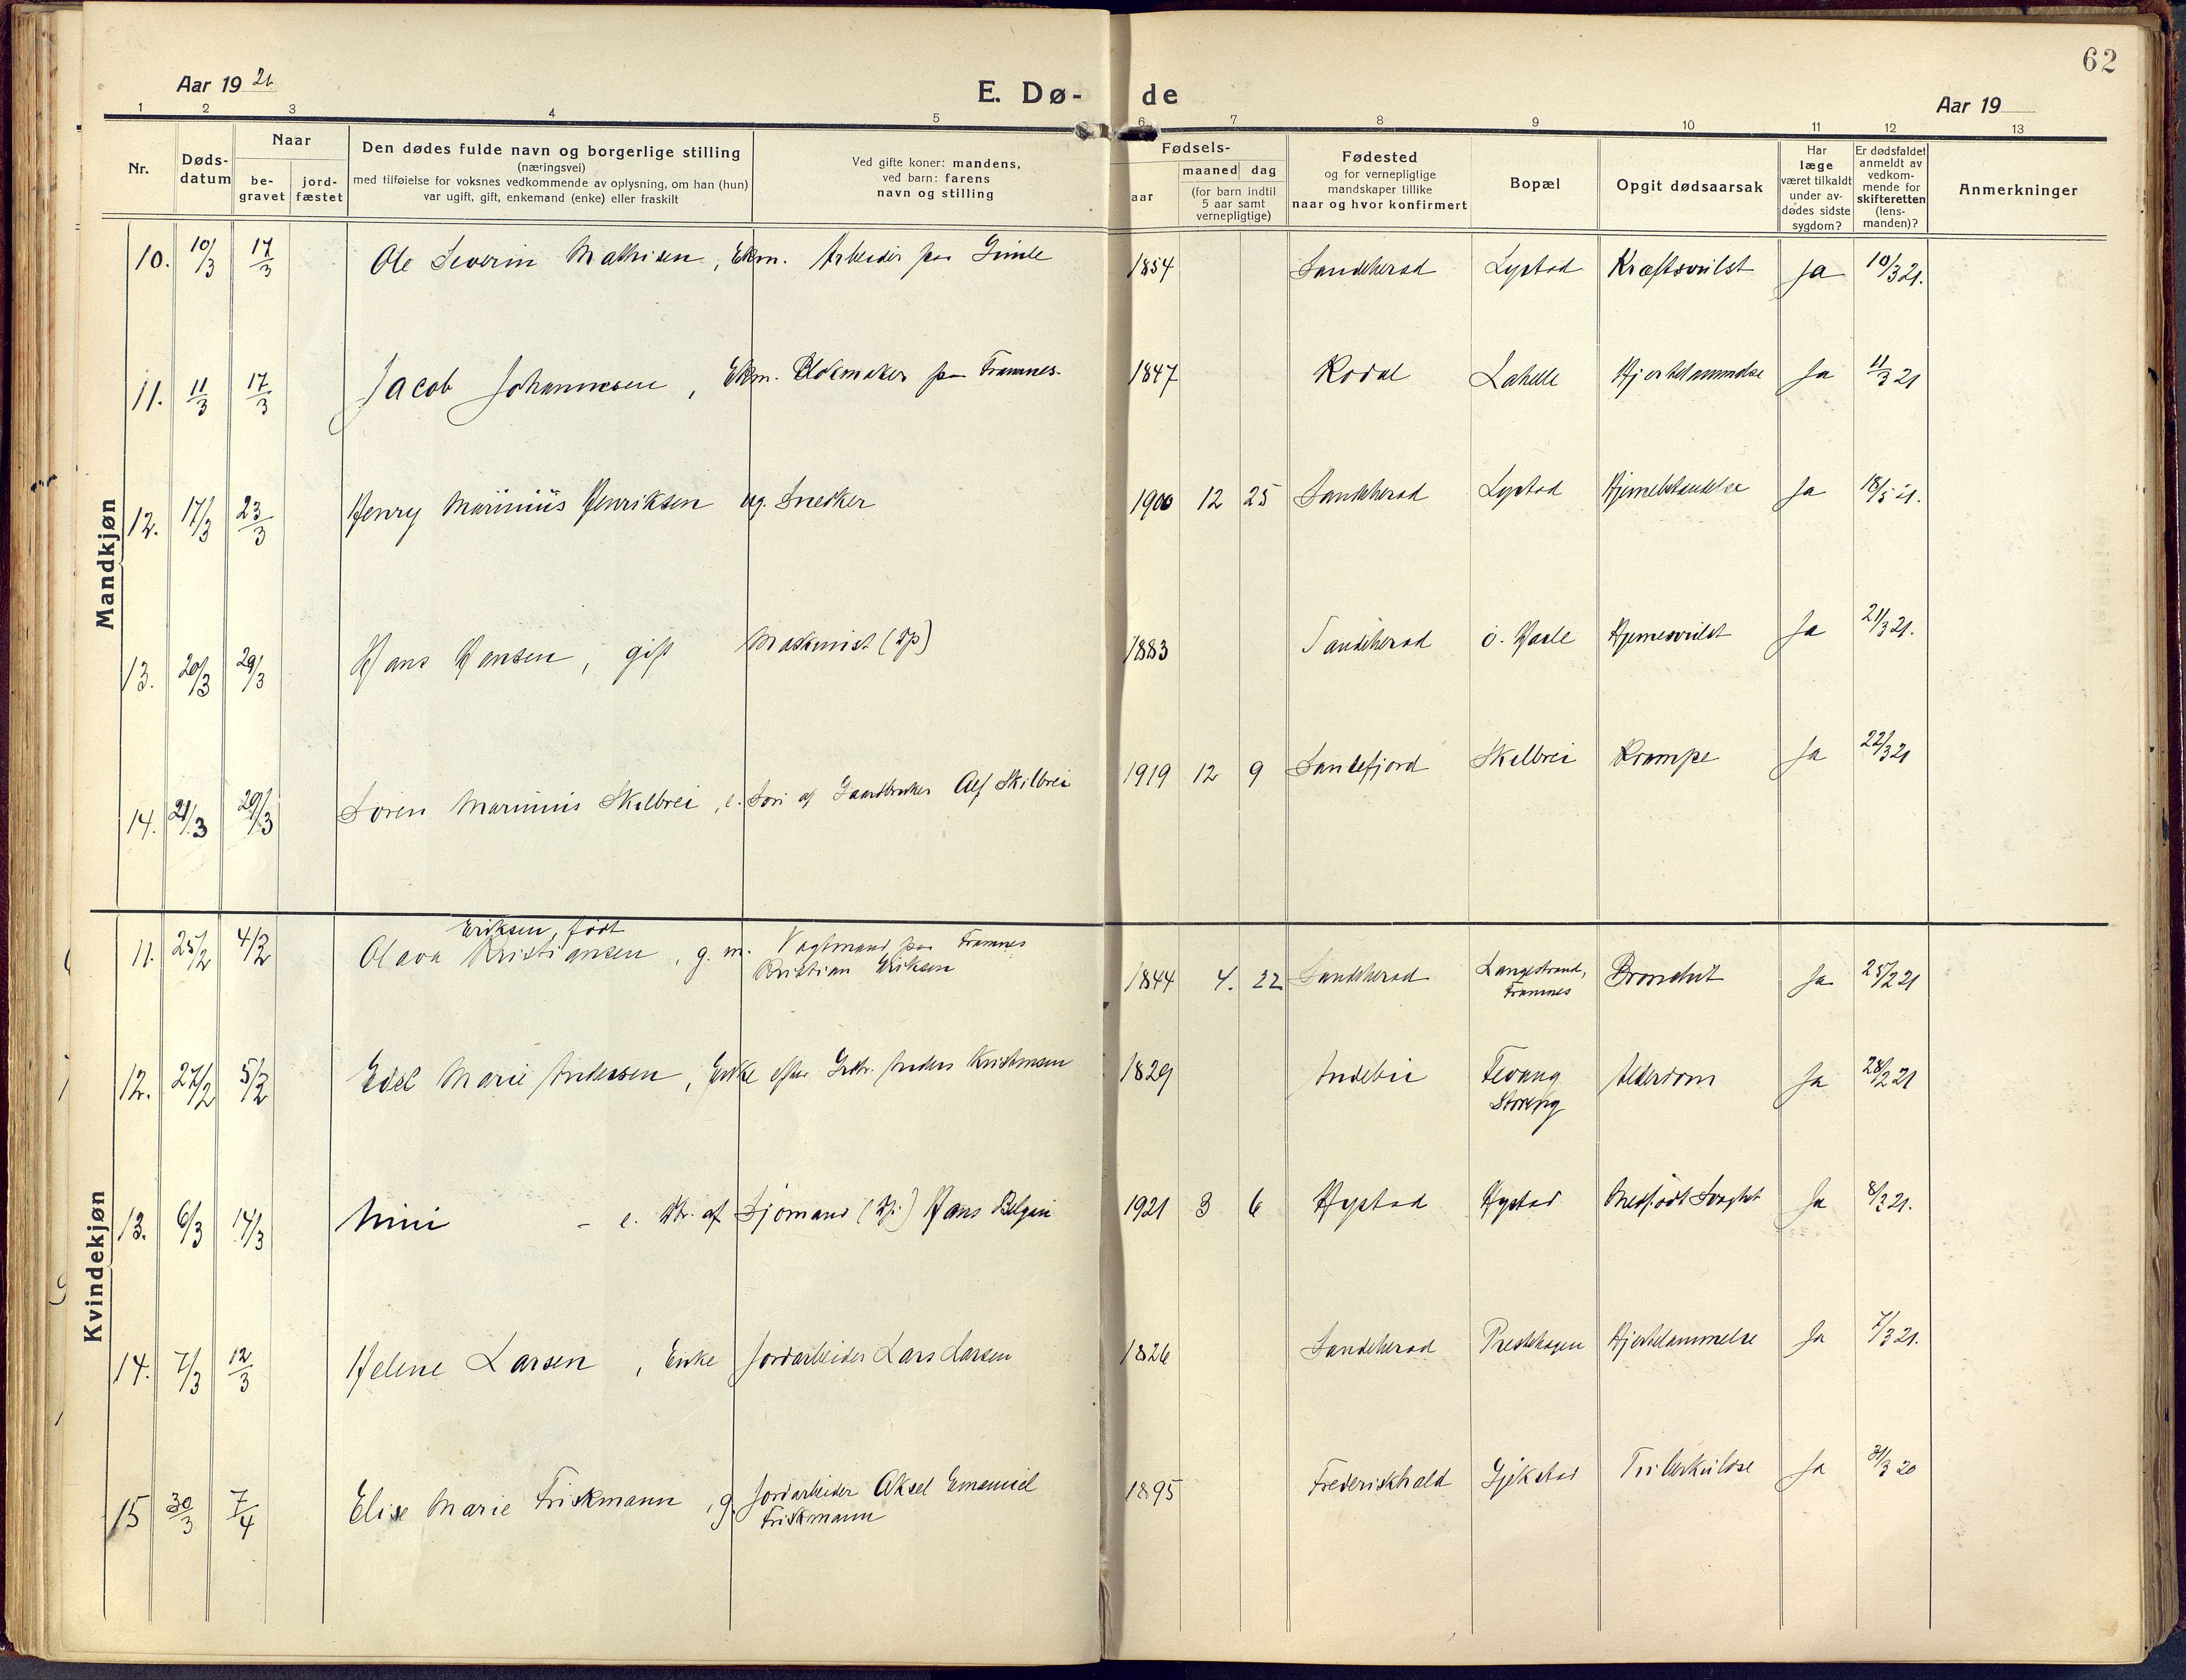 62
Aar 19 21
E. Dø-
de
Aar 19
1 2 3 4 5 6 7 8 9 10 11 12 13
Nr.
Døds-
datum
Naar
be-
gravet
jord-
fæstet
Den dødes fulde navn og borgerlige stilling
(næringsvei)
med tilføielse for voksnes vedkommende av oplysning, om han (hun)
var ugift, gift, enkemand (enke) eller fraskilt
Ved gifte koner: mandens,
ved barn: farens
navn og stilling
Fødsels-
aar
maaned dag
(for barn indtil
5 aar samt
vernepligtige)
Fødested
og for vernepligtige
mandskaper tillike
naar og hvor konfirmert
Bopæl
Opgit dødsaarsak
Har
læge
været tilkaldt
under av-
dødes sidste
sygdom?
Er dødsfaldet
anmeldt av
vedkom-
mende for
skifteretten
(lens-
manden)?
Anmerkninger
Mandkjøn
10. 10/3 17/3 Ole Severin Mathisen, Ekm. Arbeider paa Gimle 1854 Sandeherad Lystad Kræftsvulst ja 10/3 21.
11. 11/3 17/3 Jacob Johannesen, Ekm. Blokmaker paa Framnes. 1847 Kodal Lahelle Hjertelammelse Ja 11/3 21
12. 17/3 23/3 Henry Marinius Henriksen ug. Snedker 1900 12 25 Sandeherad Lystad Ja 18/5 21.
13. 20/3 29/3 Hans Hansen, gift Maskinist 1883 Sandeherad ö. Hasle Hjernesvulst Ja 21/3 21.
14. 21/3 29/3 Søren Marinius Skilbrei, e. Søn af Gaardbruker Alf Skilbrei 1919 12 9 Sandefjord Skilbrei Krampe Ja 22/3 21
Kvindekjøn
Eriksen, født
11. 25/2 4/2 Olava Kristiansen, g. m. Vagtmand paa Framnes
Kristian Eriksen 1844 4. 22 Sandeherad Langestrand,
Framnes Ja 25/2 21
12. 27/2 5/2 Edel Marie Andersen, Enke efter Grdbr. Anders Kristensen 1829 Andebu Fevang
Storeng Alderdom Ja 28/2 21
13. 6/3 14/3 Mini - e. Dtr. af Sjømand Hans 1921 3 6 Hystad Hystad Medfødt Svaghet Ja 8/3 21.
14. 7/3 12/3 Helene Larsen, Enke Jordarbeider Lars Larsen 1826 Sandeherad Presthagen Hjertelammelse Ja 7/3 21.
15 30/3 7/4 Elise Marie Friskmann, g. Jordarbeider Aksel Emanuel
Friskmann 1895 Frederikshald Gjekstad Tuberkulose Ja 31/3 20